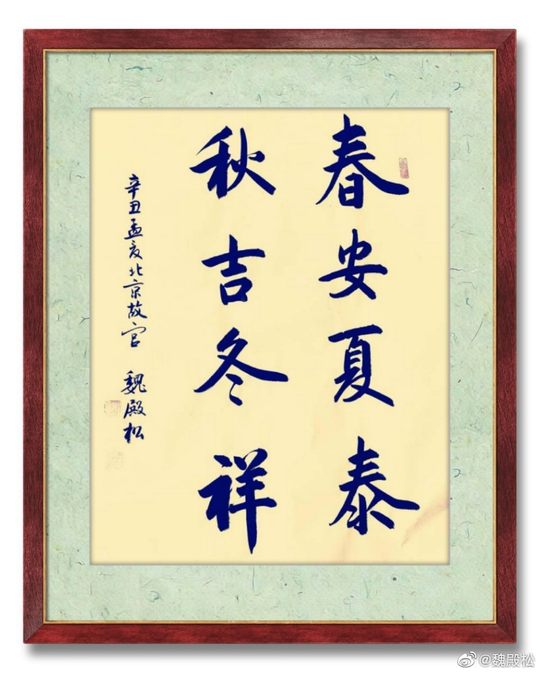 春安夏泰
秋吉冬祥
辛丑孟夏北京故宫 魏殿松
@魏殿松